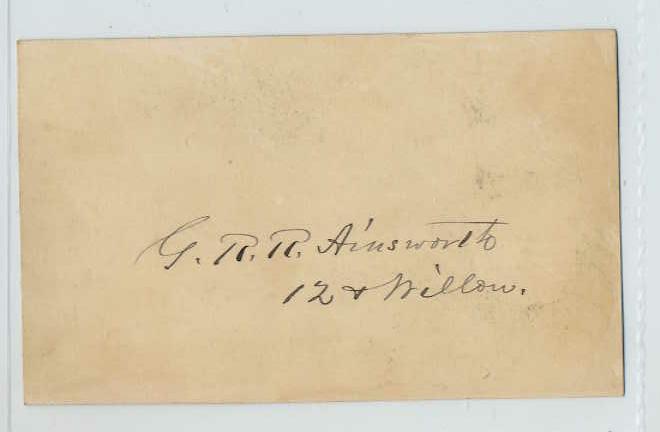 G. R. R. Ainsworth
12 & Willow.